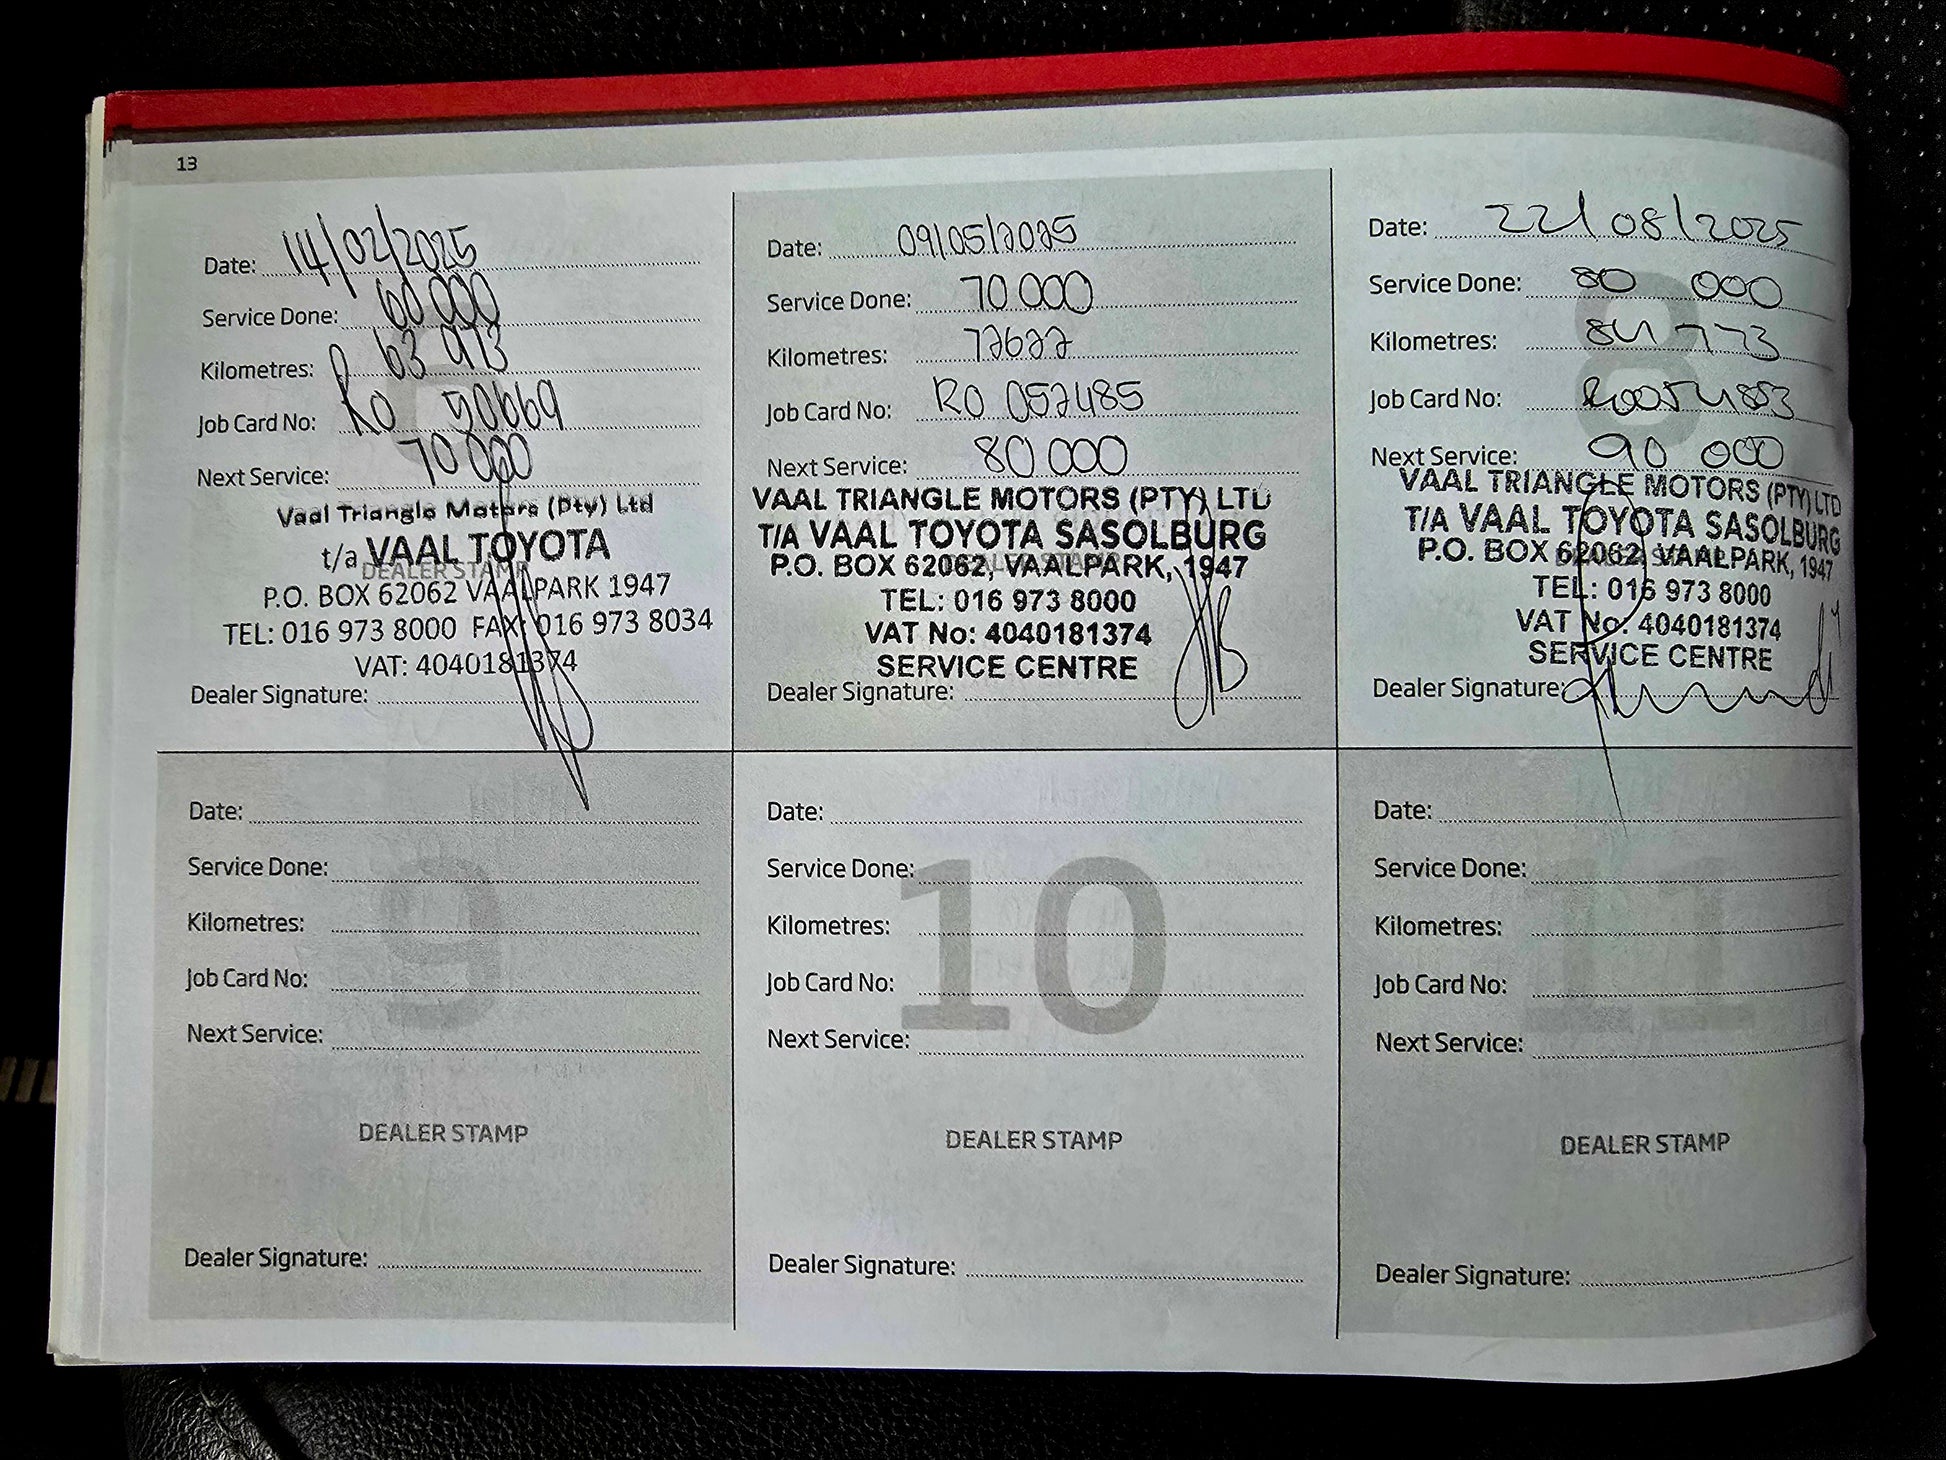 13
Date: 14/02/2025
Service Done: 60 000
Kilometres: 63 973
Job Card No: RO 50669
Next Service: 70 000
Vaal Triangle Motors (Pty) Ltd
t/a VAAL TOYOTA
DEALER STAMP
P.O. BOX 62062 VAALPARK 1947
TEL: 016 973 8000 FAX: 016 973 8034
VAT: 4040181374
Dealer Signature:
Date: 09/05/2025
Service Done: 70 000
Kilometres: 72622
Job Card No: RO 052485
Next Service: 80 000
VAAL TRIANGLE MOTORS (PTY) LTD
T/A VAAL TOYOTA SASOLBURG
DEALER STAMP
P.O. BOX 62062, VAALPARK, 1947
TEL: 016 973 8000
VAT No: 4040181374
SERVICE CENTRE
Dealer Signature:
8
Date: 22/08/2025
Service Done: 80 000
Kilometres: 84 773
Job Card No: RO054883
Next Service: 90 000
VAAL TRIANGLE MOTORS (PTY) LTD
T/A VAAL TOYOTA SASOLBURG
P.O. BOX 62062, VAALPARK, 1947
TEL: 016 973 8000
VAT No: 4040181374
SERVICE CENTRE
Dealer Signature:
9
Date:
Service Done:
Kilometres:
Job Card No:
Next Service:
DEALER STAMP
Dealer Signature:
10
Date:
Service Done:
Kilometres:
Job Card No:
Next Service:
DEALER STAMP
Dealer Signature:
11
Date:
Service Done:
Kilometres:
Job Card No:
Next Service:
DEALER STAMP
Dealer Signature: